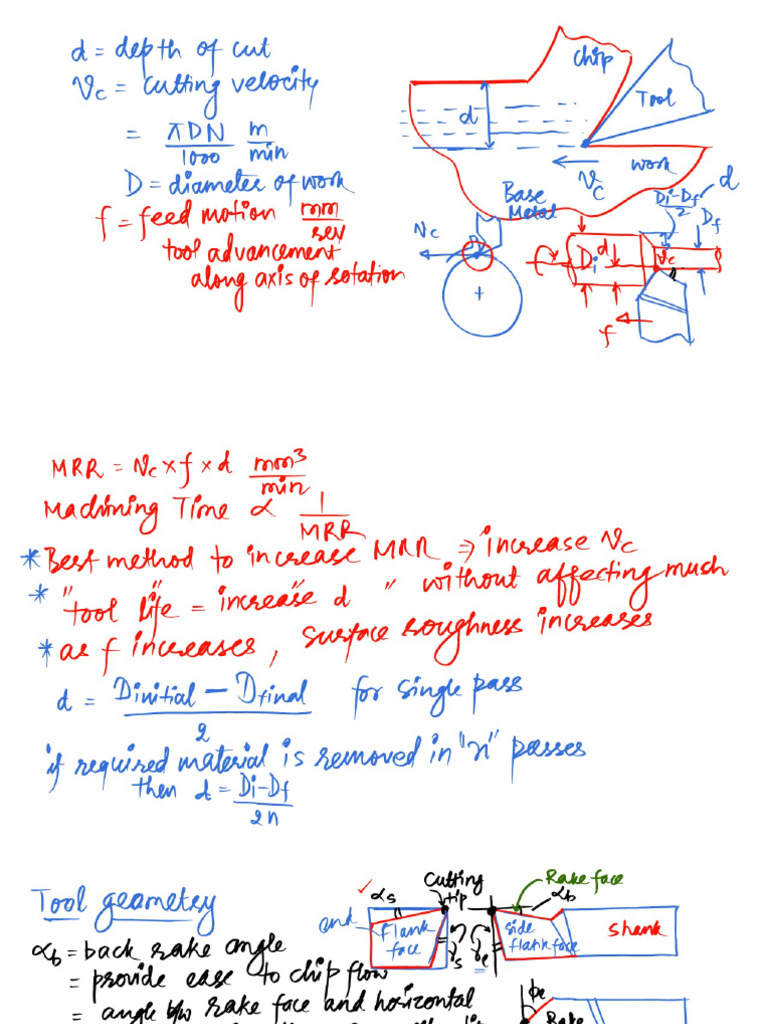 d = depth of cut
Vc = cutting velocity
= πDN/1000 m/min
D = diameter of work
f = feed motion mm/rev
tool advancement
along axis of rotation
chip
Tool
d
Vc
work
Base
Metal
Di-Df/2
d
Df
Vc
Di
d
Vc
f
MRR = Vc × f × d mm³/min
Machining Time ∝ 1/MRR
* Best method to increase MRR ⇒ increase Vc
* " " " " without affecting much
"tool life = increase d
* as f increases, surface roughness increases
d = Dinitial − Dfinal / 2 for single pass
if required material is removed in "n" passes
then d = Di-Df / 2n
Tool geometry
αb = back rake angle
= provide ease to chip flow
= angle b/w rake face and horizontal
αs
Cutting
tip
Rake face
αb
end
flank
face
γs
γe
side
flank face
shank
φe
Rake